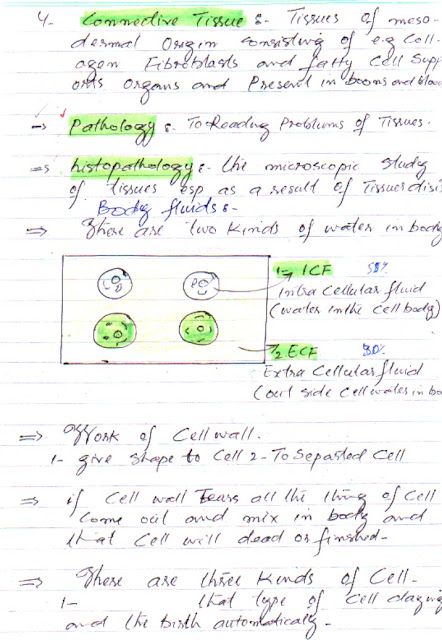 4- Connective Tissue :- Tissues of meso-
dermal Origin consisting of e.g Coll-
agen Fibroblasts and fatty Cell Supp
orts Organs and Present in boons and bloo
=> Pathology :- To Reading Problems of Tissues.
=> histopathology :- the microscopic study
of tissues esp as a result of Tissues disi
Body fluids :-
=> There are two kinds of water in body
1- ICF 50%
Intra Cellular fluid
(water in the Cell body)
2 ECF
Extra Cellular fluid
(out side Cell water in bo
=> Work of Cell wall.
1- give shape to Cell 2- To Separted Cell
=> if Cell wall Tears all the thing of Cell
Come out and mix in body and
that Cell will dead or finished-
=> There are three Kinds of Cell-
1- that type of Cell
and the birth automatically-